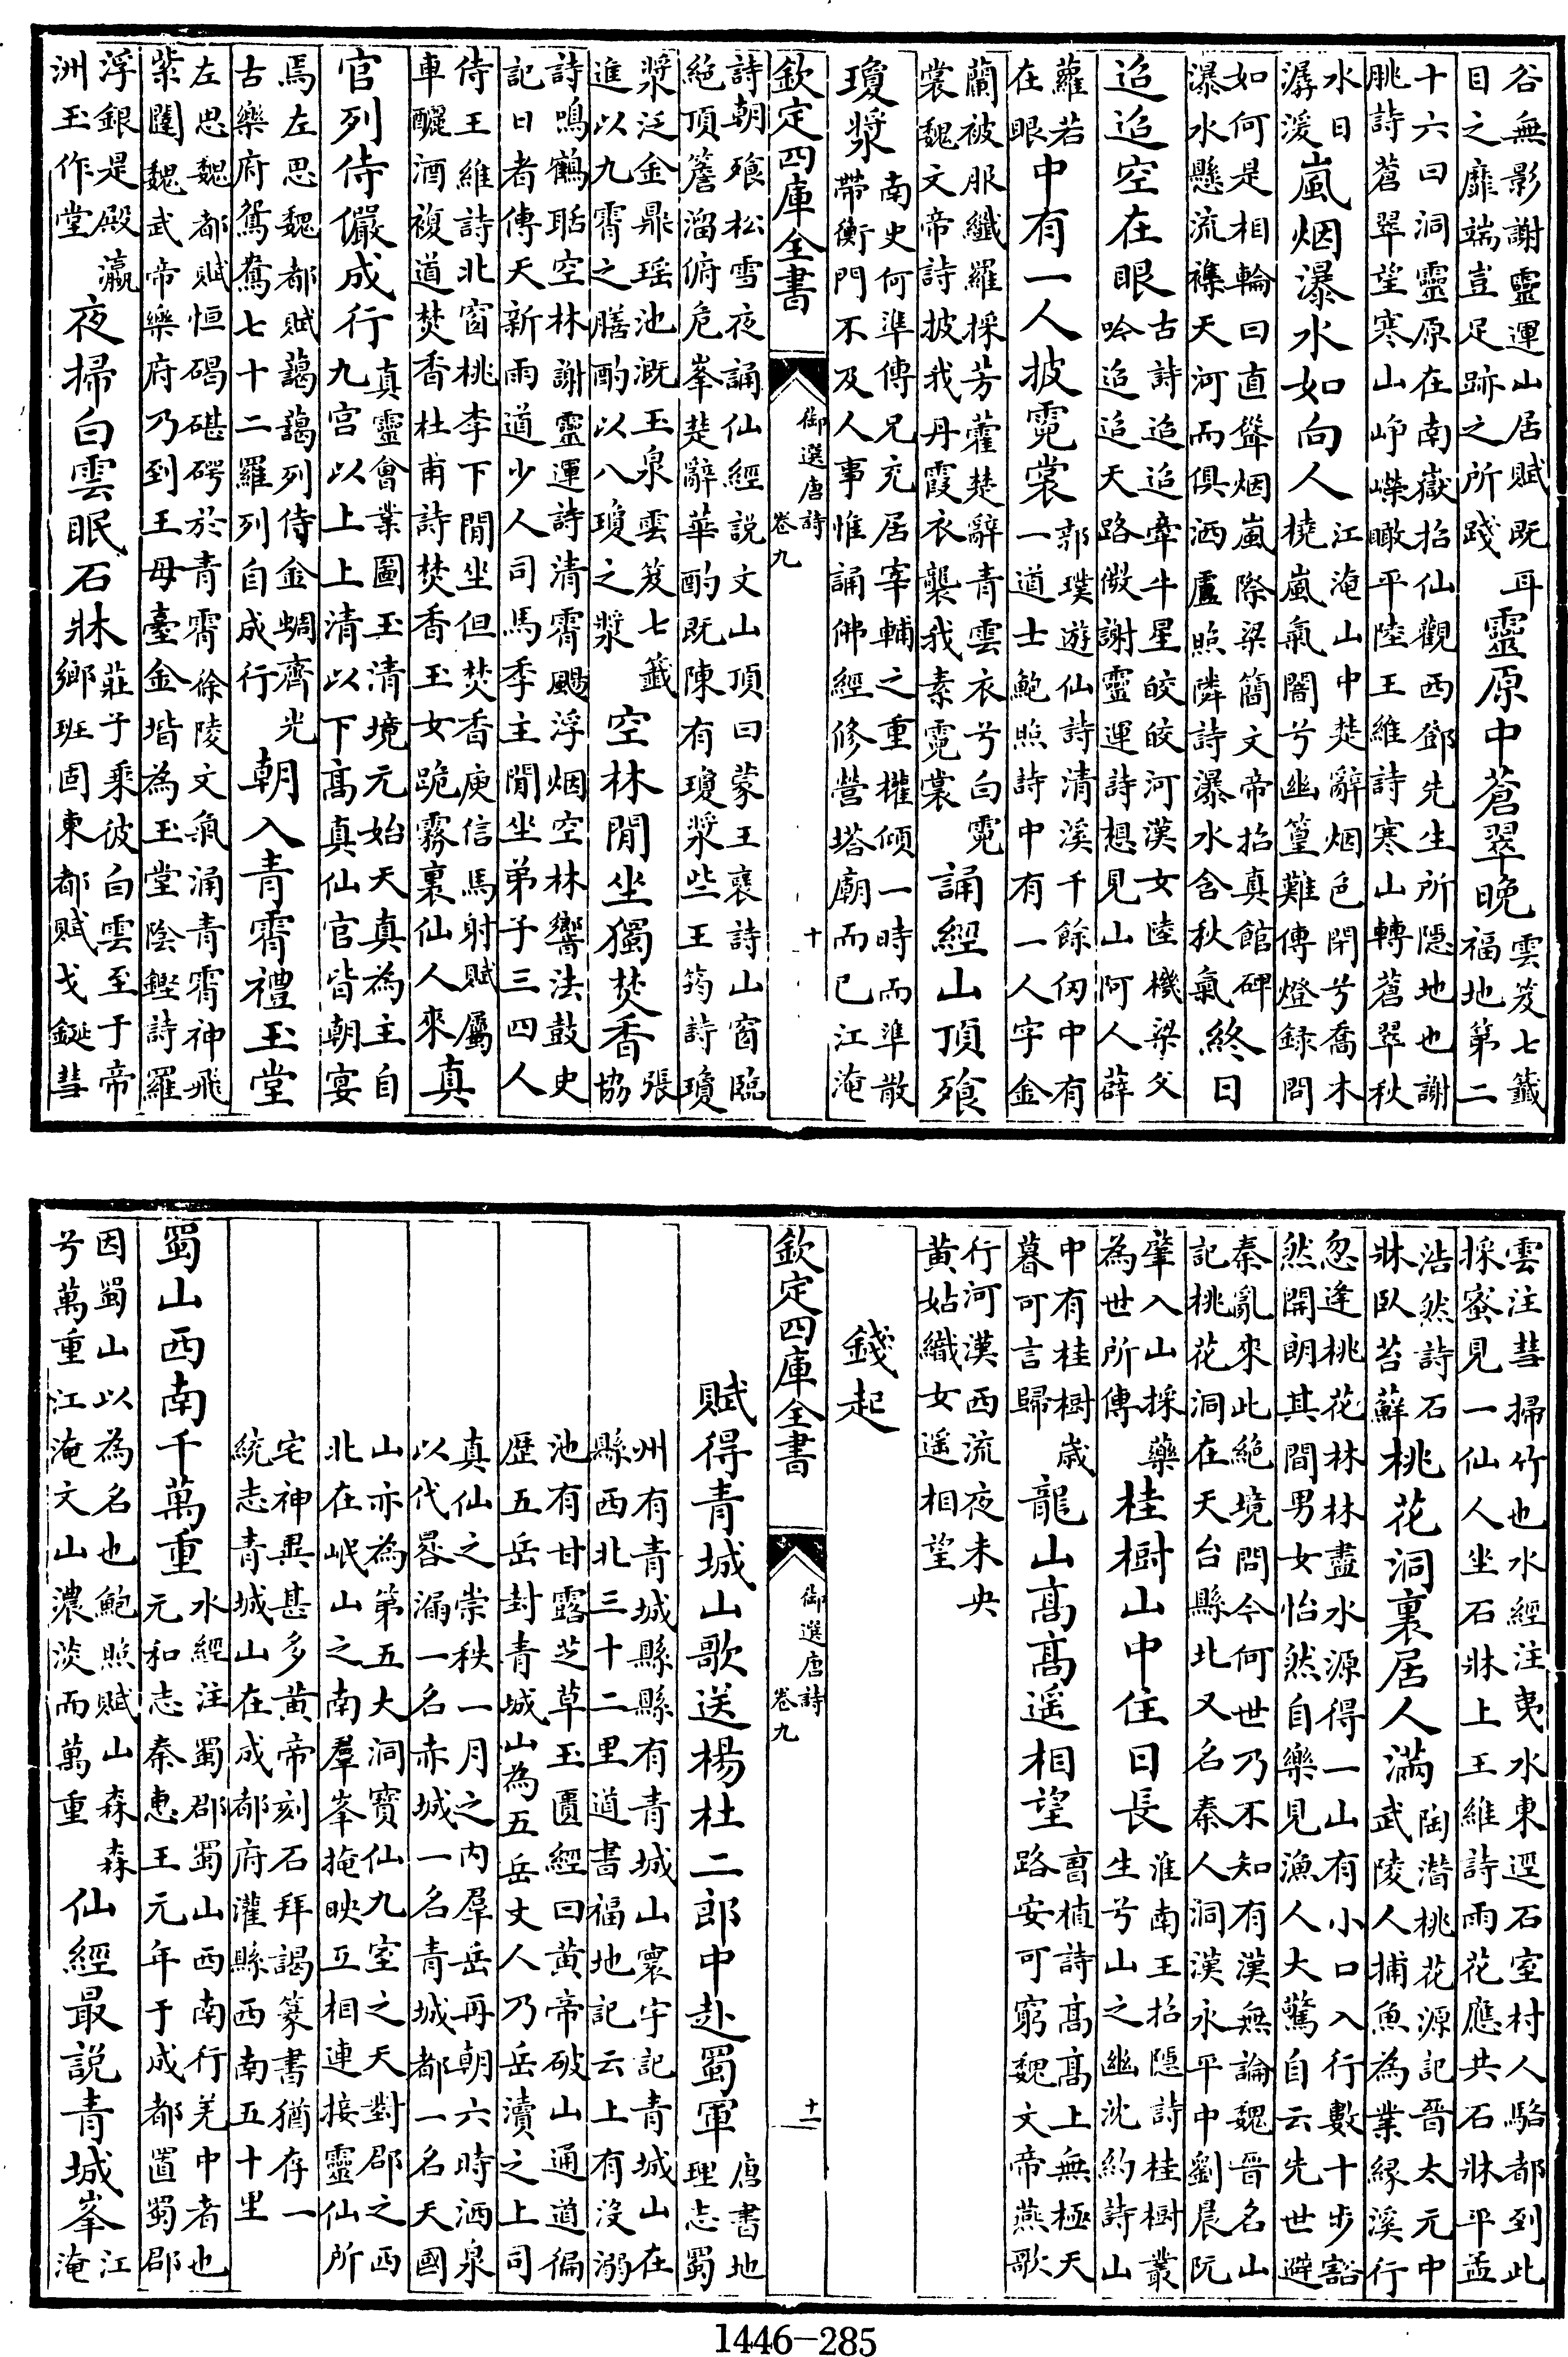 谷無影謝靈運山居賦既耳目之靡端豈足跡之所踐靈原中蒼翠晚雲笈七籤福地第二
十六曰洞靈原在南嶽招仙觀西鄧先生所隱地也謝朓詩蒼翠望寒山崢嶸瞰平陸王維詩寒山轉蒼翠秋
水日潺湲嵐烟瀑水如向人江淹山中楚辭烟色閉兮喬木橈嵐氣闇兮幽篁難傳燈録問
如何是相輪曰直聳烟嵐際梁簡文帝招真館碑瀑水懸流襍天河而俱洒盧照隣詩瀑水含秋氣終日
迢迢空在眼古詩迢迢牽牛星皎皎河漢女陸機梁父吟迢迢天路徴謝靈運詩想見山阿人薜
蘿若在眼中有一人披霓裳郭璞遊仙詩清溪千餘仞中有一道士鮑照詩中有一人字金
蘭被服纖羅採芳藿楚辭青雲衣兮白霓裳魏文帝詩披我丹霞衣襲我素霓裳誦經山頂飱
瓊漿南史何準傳兄充居宰輔之重權傾一時而準散帶衡門不及人事惟誦佛經修營塔廟而已江淹
欽定四庫全書 御選唐詩 卷九 十
詩朝飱松雪夜誦仙經説文山頂曰蒙王裒詩山窗臨絕頂簷溜俯危峯楚辭華酌既陳有瓊漿些王筠詩瓊
漿泛金鼎瑶池溉玉泉雲笈七籤進以九霄之膳酌以八瓊之漿空林閒坐獨焚香張協
詩鳴鶴聒空林謝靈運詩清霄颺浮烟空林響法鼓史記日者傳天新雨道少人司馬季主閒坐弟子三四人
侍王維詩北窗桃李下閒坐但焚香庾信馬射賦屬車釃酒複道焚香杜甫詩焚香玉女跪霧裏仙人來真
官列侍儼成行真靈會業圖玉清境元始天真為主自九宫以上上清以下髙真仙官皆朝宴
焉左思魏都賦藹藹列侍金蜩齊光古樂府鴛鴦七十二羅列自成行朝入青霄禮玉堂
左思魏都賦恒碣碪碍於青霄徐陵文氣涌青霄神飛紫闥魏武帝樂府乃到王母臺金堦為玉堂陰鏗詩羅
浮銀是殿瀛洲玉作堂夜掃白雲眠石牀莊子乘彼白雲至于帝鄉班固東都賦戈鋋彗
雲注彗掃竹也水經注夷水東逕石室村人駱都到此採蜜見一仙人坐石牀上王維詩雨花應共石牀平孟
浩然詩石牀臥苔蘚桃花洞裏居人滿陶潛桃花源記晉太元中武陵人捕魚為業緣溪行
忽逢桃花林林盡水源得一山有小口入行數十步豁然開朗其間男女怡然自樂見漁人大驚自云先世避
秦亂來此絕境問今何世乃不知有漢無論魏晉名山記桃花洞在天台縣北又名秦人洞漢永平中劉晨阮
肇入山採藥為世所傳桂樹山中住日長淮南王招隱詩桂樹叢生兮山之幽沈約詩山
中有桂樹歲暮可言歸龍山髙髙遥相望曹植詩髙髙上無極天路安可窮魏文帝燕歌
行河漢西流夜未央黃姑織女遥相望
錢起
欽定四庫全書 御選唐詩 卷九 十一
賦得青城山歌送楊杜二郎中赴蜀軍唐書地理志蜀
州有青城縣縣有青城山寰宇記青城山在縣西北三十二里道書福地記云上有沒溺
池有甘露芝草玉匱經曰黃帝破山通道徧歴五岳封青城山為五岳丈人乃岳瀆之上司
真仙之崇秩一月之內羣岳再朝六時洒泉以代晷漏一名赤城一名青城都一名天國
山亦為第五大洞寶仙九室之天對郡之西北在岷山之南羣峯掩映互相連接靈仙所
宅神異甚多黃帝刻石拜謁篆書猶存一統志青城山在成都府灌縣西南五十里
蜀山西南千萬重水經注蜀郡蜀山西南行羌中者也元和志秦惠王元年于成都置蜀郡
因蜀山以為名也鮑照賦山森森兮萬重江淹文山濃淡而萬重仙經最説青城峯江淹
1446-285